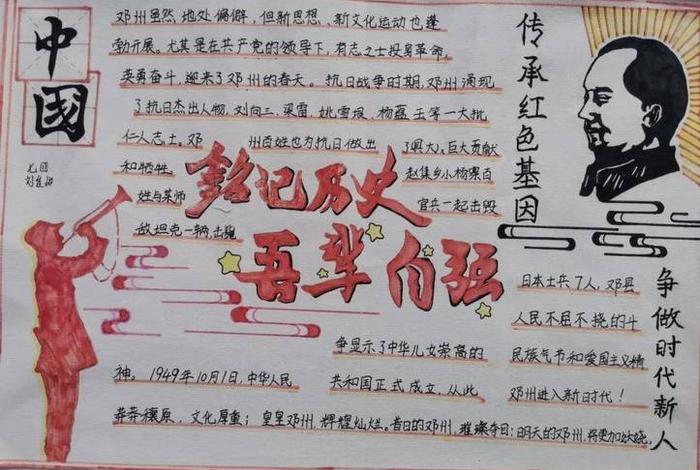 中
國
邓州虽然地处偏僻,但新思想、新文化运动也蓬
勃开展。尤其是在共产党的领导下,有志之士投身革命,
英勇奋斗,迎来了邓州的春天。抗日战争时期,邓州涌现
了抗日杰出人物,刘向三、梁雷、姚雪垠、杨蕴玉等一大批
仁人志士。邓州百姓也为抗日做出了兴大、巨大贡献
和牺牲。赵集乡小杨寨百
姓与某师官兵一起击毁
敌坦克一辆,击毙
日本士兵7人,邓县
人民不屈不挠的斗
争显示了中华儿女崇高的民族气节和爱国主义精
神。1949年10月1日,中华人民共和国正式成立,从此,邓州进入新时代!
莽莽穰原,文化厚重;皇皇邓州,辉煌灿烂。昔日的邓州,璀璨夺目;明天的邓州,将更加妖娆。
铭记历史
吾辈自强
传承红色基因
争做时代新人